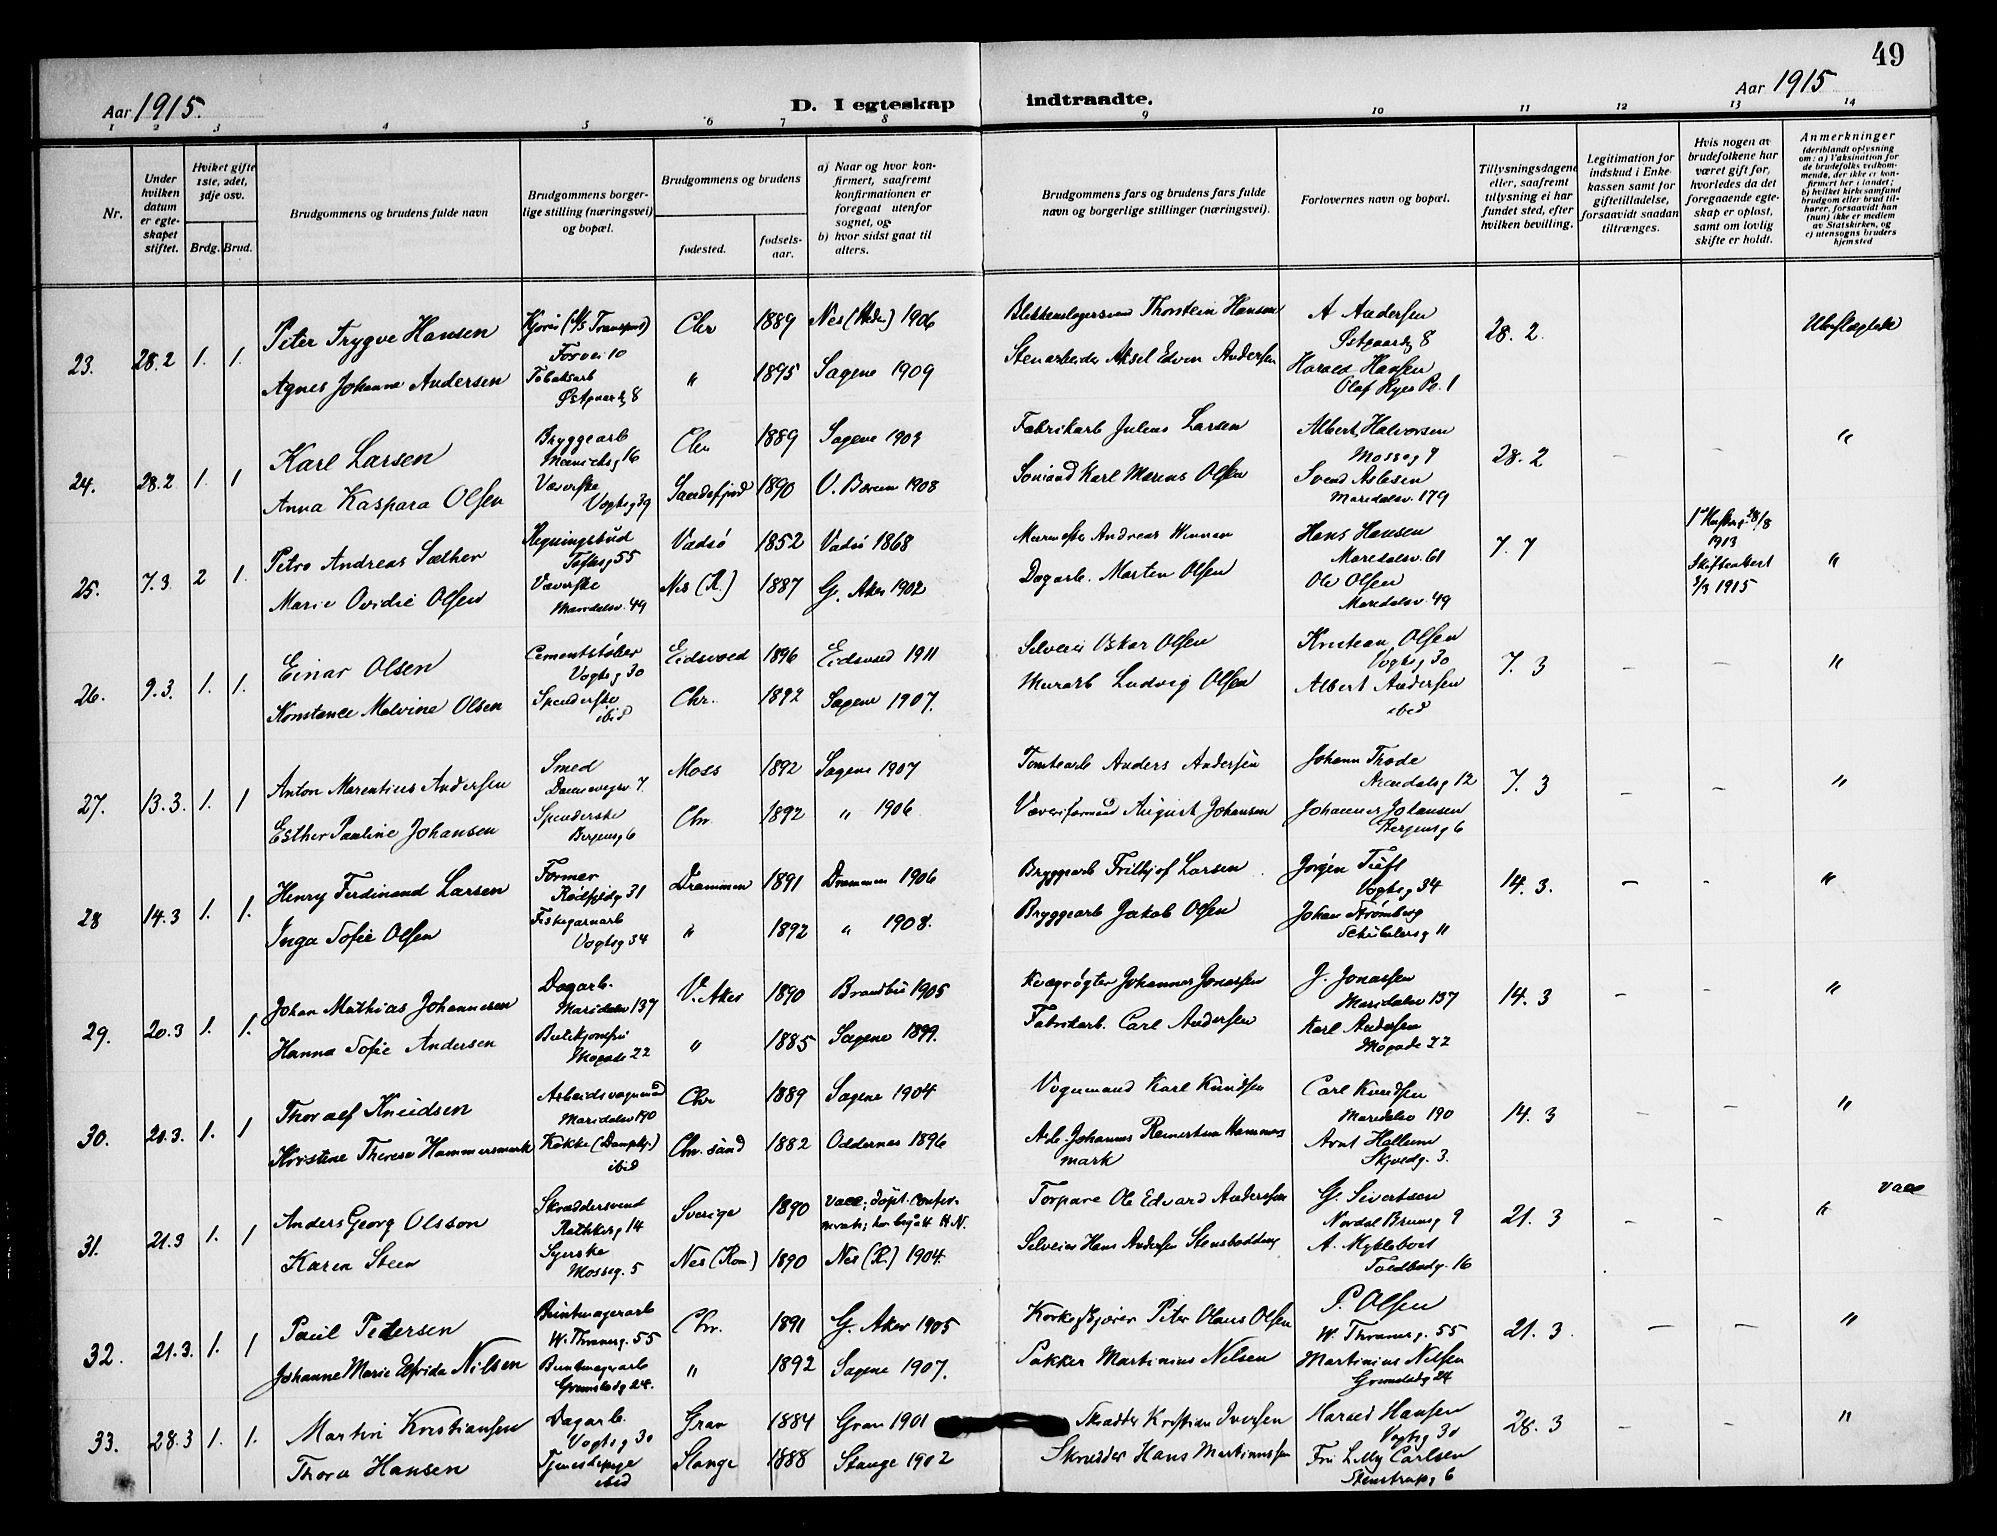 49
Aar 1915.
D. I egteskap indtraadte.
Aar 1915
1 2 3 4 5 6 7 8 9 10 11 12 13 14
Nr.
Under hvilken datum er egteskapet stiftet.
Hviket gifte 1ste, 2det, 3dje osv.
Brdg. Brud.
Brudgommens og brudens fulde navn
Brudgommens borgerlige stilling (næringsvei) og bopæl.
Brudgommens og brudens
fødested.
fødselsaar.
a) Naar og hvor konfirmert, saafremt konfirmationen er foregaat utenfor sognet, og
b) hvor sidst gaat til alters.
Brudgommens fars og brudens fars fulde navn og borgerlige stillinger (næringsvei).
Forlovernes navn og bopæl.
Tillysningsdagene eller, saafremt tillysning ei har fundet sted, efter hvilken bevilling.
Legitimation for indskud i Enkekassen samt for giftetilladelse, forsaavidt saadan tiltrænges.
Hvis nogen av brudefolkene har været gift før, hvorledes da det foregaaende egteskap er opløst, samt om lovlig skifte er holdt.
Anmerkninger
(deriblandt oplysning om: a) Vaksination for de brudefolks vedkommende, der ikke er konfirmert her i landet; b) hvilket kirkesamfund brudgom eller brud tilhører, forsaavidt han (hun) ikke er medlem av Statskirken, og c) utensogns bruders hjemsted
23. 28.2 1. 1. Peter Trygve Hansen Chr 1889 Nes 1906 Thorstein Hansen A Andersen 28. 2. Ubeslægtede
Forvei 10 Østgaardg 8
Agnes Johanne Andersen Tobaksarb " 1895 Sagene 1909 Stenarbeider Aksel Edvin Andersen Harald Hansen
Østgaardg 8 Olaf Ryes Pl. 1
24. 28.2 1. 1 Karl Larsen Bryggearb Chr 1889 Sagene 1903 Fabrikarb Julius Larsen Albert Halvorsen 28. 2 - - "
16 Mosseg 7
Anna Kaspara Olsen Væverske Sandefjord 1890 V. Bærum 1908 Sømand Karl Marius Olsen Svend Aslesen
Vogtsg 39 Maridalsv. 179
25. 7.3 2 1. Petro Andreas Sæther Regningsbud Vadsø 1852 Vadsø 1868 Andreas Hans Hansen 7. 7 28/8 1913 "
Toftesg 55 Maridalsv. 61
Marie Ovidie Olsen Væverske Nes (R.) 1887 G. Aker 1902 Dagarb. Martin Olsen Ole Olsen 1915
Maridalsv. 49 Maridalsv 49
26. 9.3. 1. 1. Einar Olsen Cementstøber Eidsvold 1896 Eidsvold 1911 Selveier Oskar Olsen Kristian Olsen 7. 3 - - "
Vogtsg 30 Vogtsg 30
Konstance Malvine Olsen Spinderske Chr. 1892 Sagene 1907. Murarb Ludvig Olsen Albert Andersen
ibid ibid
27. 13.3. 1. 1 Anton Marentius Andersen Smed Moss 1892 Sagene 1907 Tomtearb Anders Andersen Johann Thode 7. 3 - - "
Dannevigsv 7. Arendalsg 12
Esther Pauline Johansen Spinderske Chr. 1892 " 1906 Væveriformand August Johansen Johannes Johansen
Bergensg 6 Bergensg 6
28 14.3 1. 1. Henry Ferdinand Larsen Former Drammen 1891 Drammen 1906 Bryggearb Frithjof Larsen Jørgen Tueft 14. 3. - - "
31 Vogtsg 34
Inga Sofie Olsen Fiskegarnarb " 1892 " 1908. Bryggearb Jakob Olsen Johan Strømberg
Vogtsg 34 Schübelersg 11
29. 20.3 1. 1. Johan Mathias Johannesen Dagarb. V. Aker 1890 Brandbu 1905 Kvægrøgter Johannes Jonassen J. Jonassen 14. 3 - - "
Maridalsv 137 Maridalsv 137
Hanna Sofie Andersen Butikjomfru " 1885 Sagene 1899. Fabrikarb. Carl Andersen Karl Andersen
Mogade 22 Mogade 22
30. 20.3. 1. 1 Thoralf Knudsen Arbeidsvognmand Chr 1889 Sagene 1904 Vognmand Karl Knudsen Carl Knudsen 14. 3 - - "
Maridalsv 190 Maridalsv 190
Kristine Therese Hammersmark Kokke (Dampkj.) Chr. sand 1882 Oddernes 1896 Arb. Johannes Reinertsen Hammersmark Arnt Hallum
ibid Skjoldg. 3.
31. 21.3 1. 1 Anders Georg Olsson Skræddersvend Sverige 1890 Vacc.; døpt. Torpare Ole Edvard Andersson G. Sivertsen 21. 3 - - " Vacc
Rathkesg 14 Nordal Brunsg 9
Karen Steen Syerske Nes (Rom) 1890 Nes (R.) 1904. Selveier Hans Andersen A. Myklebost
Mosseg. 5 Toldbodg. 16
32. 21.3. 1. 1 Paul Pedersen Buntmagerarb Chr. 1891 G. Aker 1905 Korkeskjærer Peter Olaus Olsen P. Olsen 21. 3. - - "
W. Thranesg. 55 W. Thranesg. 55
Johanne Marie Elfrida Nilsen Buntmagerarb " 1892 Sagene 1907. Pakker Martinius Nilsen Martinius Nilsen
Grimstadg 24. Grimstadg 24
33. 28.3 1. 1. Martin Kristiansen Dagarb. Gran 1884 Gran 1901 Kristian Iversen Harald Hansen 28. 3 - - "
Vogtsg 30 Vogtsg 30
Thora Hansen Tjenestepige Stange 1888 Stange 1902 Skrædder Hans Martinussen Fru Lilly Carlsen
ibid Stenstrupg 6